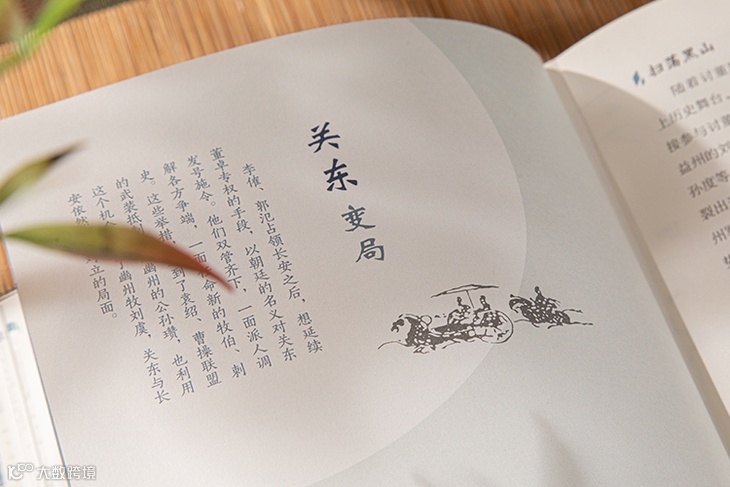 关东
变局
李傕、郭汜占领长安之后，想延续
董卓专权的手段，以朝廷的名义对关东
发号施令。他们双管齐下，一面派人调
解各方争端，一面命新的牧伯、刺
史。这些举措，到了袁绍、曹操联盟
的武装抵幽州的公孙瓒，也利用
这个机了幽州牧刘虞，关东与长
安依然立的局面。
扫荡黑山
随着讨董
上历史舞台、
接参与讨
益州的刘
孙度等
裂出
州
大数跨境